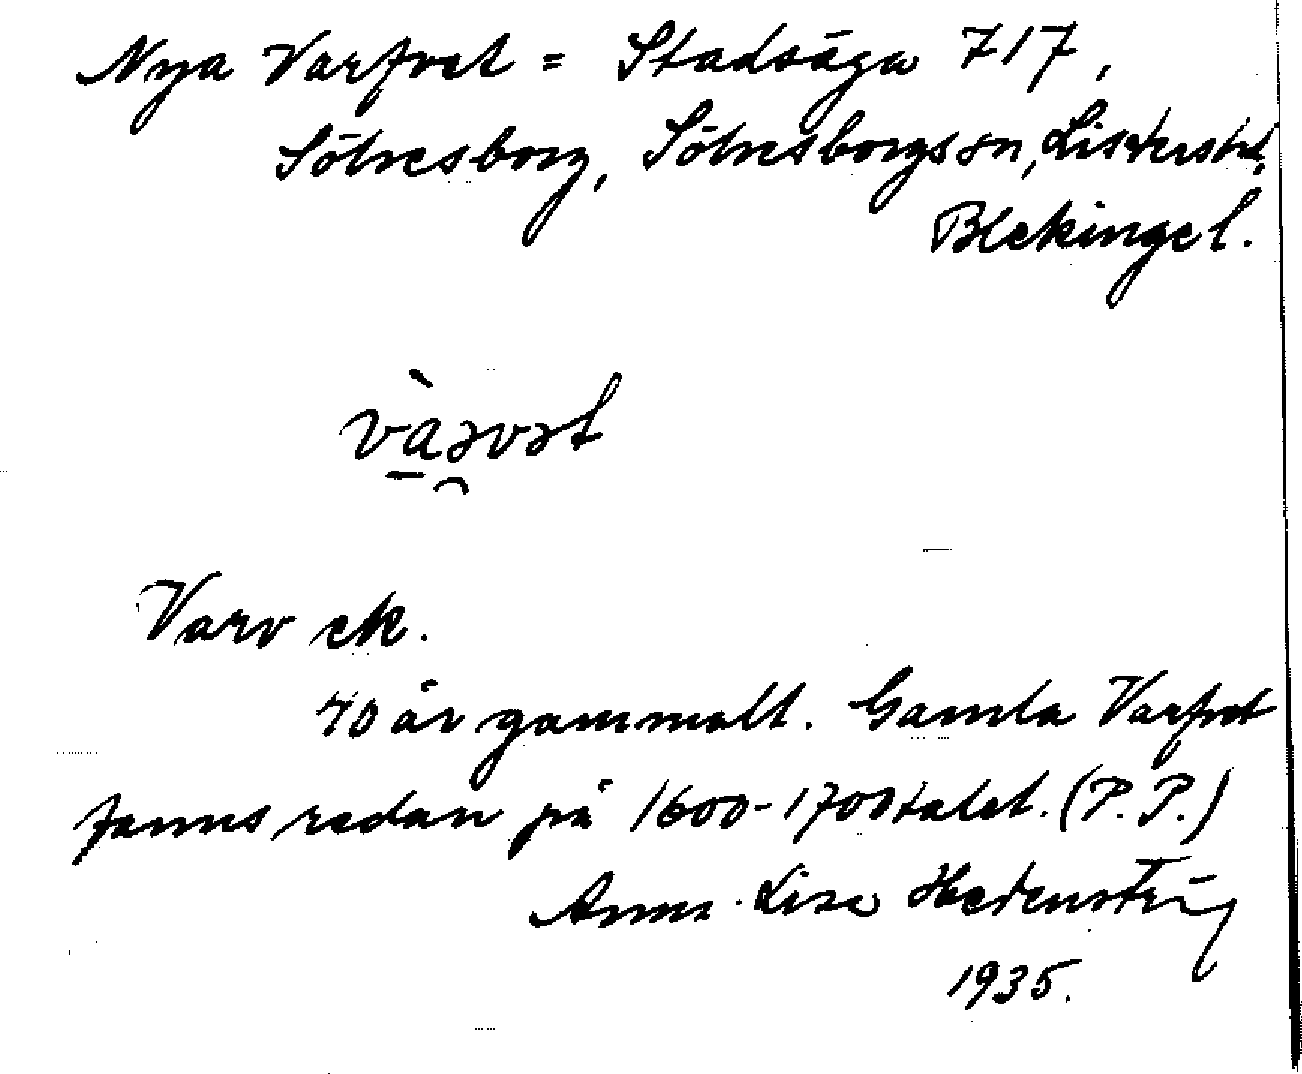 Nya Varfvet = Stadsäga 717,
Sölvesborg, Sölvesborgs sn, Listers hd,
Blekinge l.
và̱ə̯vət
Varv ek.
70 år gammalt. Gamla Varfvet
fanns redan på 1600-1700talet. (P. P.)
Anna-Lisa
1935.